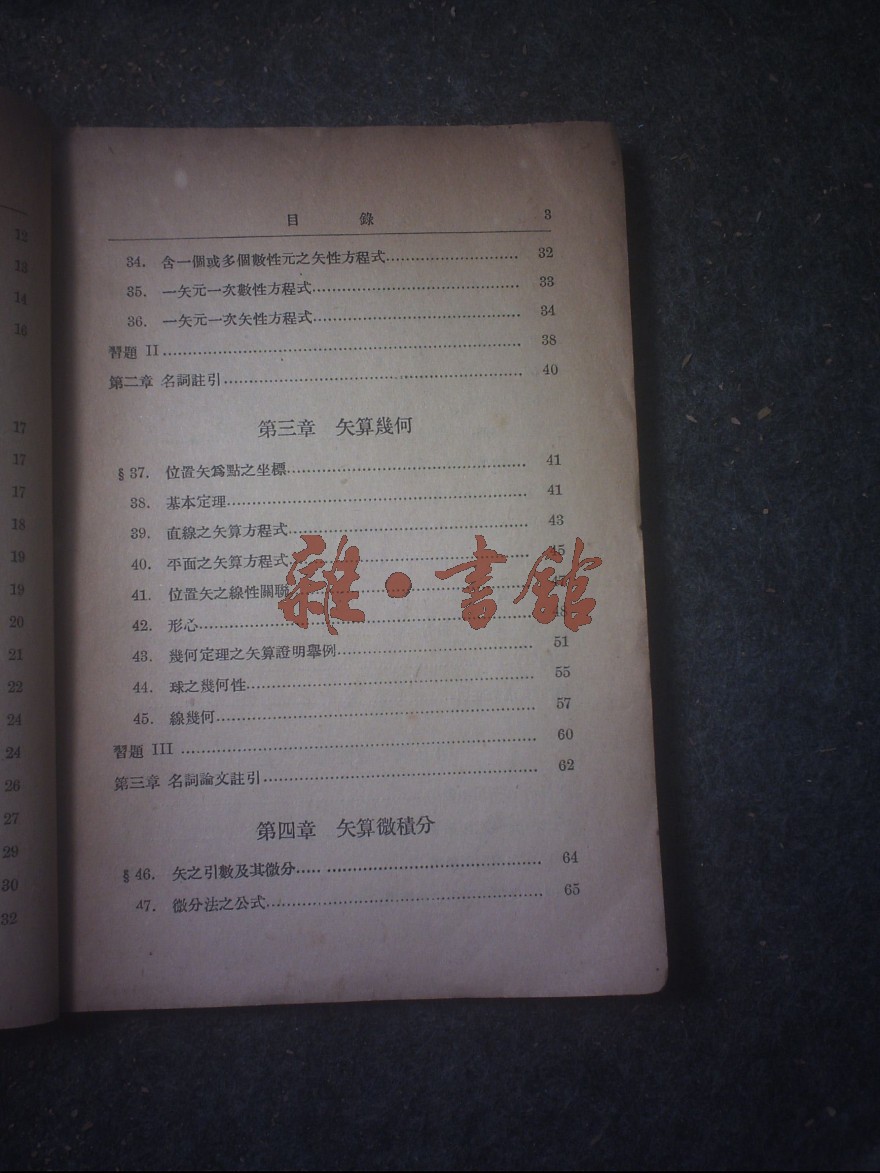 12
13
14
16
17
17
17
18
19
19
20
21
22
24
24
26
27
29
30
32
目 錄 3
34. 含一個或多個數性元之矢性方程式 32
35. 一矢元一次數性方程式 33
36. 一矢元一次矢性方程式 34
習題 II 38
第二章 名詞註引 40
第三章 矢算幾何
§ 37. 位置矢爲點之坐標 41
38. 基本定理 41
39. 直線之矢算方程式 43
40. 平面之矢算方程式 45
41. 位置矢之線性關聯
42. 形心 48
43. 幾何定理之矢算證明舉例 51
44. 球之幾何性 55
45. 線幾何 57
習題 III 60
第三章 名詞論文註引 62
第四章 矢算微積分
§ 46. 矢之引數及其微分 64
47. 微分法之公式 65
雜·書館